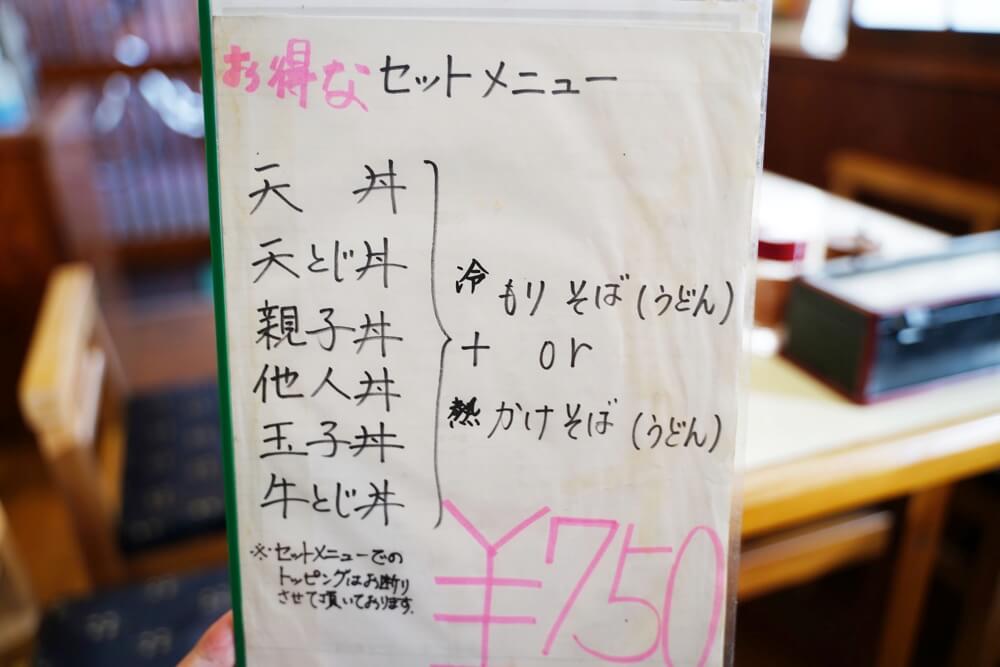 お得な セットメニュー
天 丼
天とじ丼
親子丼
他人丼
玉子丼
牛とじ丼
冷 もりそば(うどん)
+ or
熱 かけそば(うどん)
※セットメニューでの
トッピングはお断り
させて頂いております。
¥750